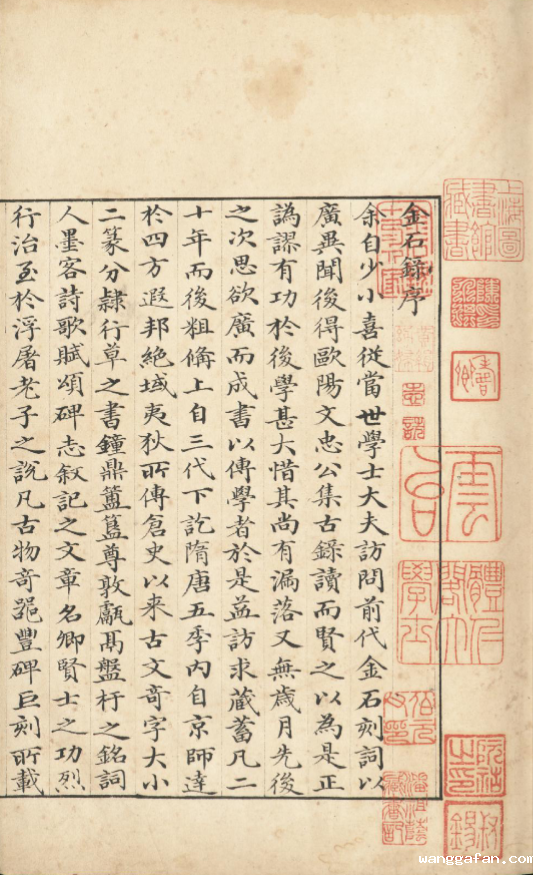 金石錄序
余自少小喜從當世學士大夫訪問前代金石刻詞以
廣異聞後得歐陽文忠公集古錄讀而賢之以為是正
譌謬有功於後學甚大惜其尚有漏落又無歲月先後
之次思欲廣而成書以傳學者於是益訪求藏蓄凡二
十年而後粗備上自三代下訖隋唐五季內自京師達
於四方遐邦絕域夷狄所傳倉史以来古文奇字大小
二篆分隷行草之書鐘鼎簠簋尊敦甗鬲盤杅之銘詞
人墨客詩歌賦頌碑志敘記之文章名卿賢士之功烈
行治至於浮屠老子之說凡古物奇器豐碑巨刻所載
上海圖書館藏書
wanggafan.com